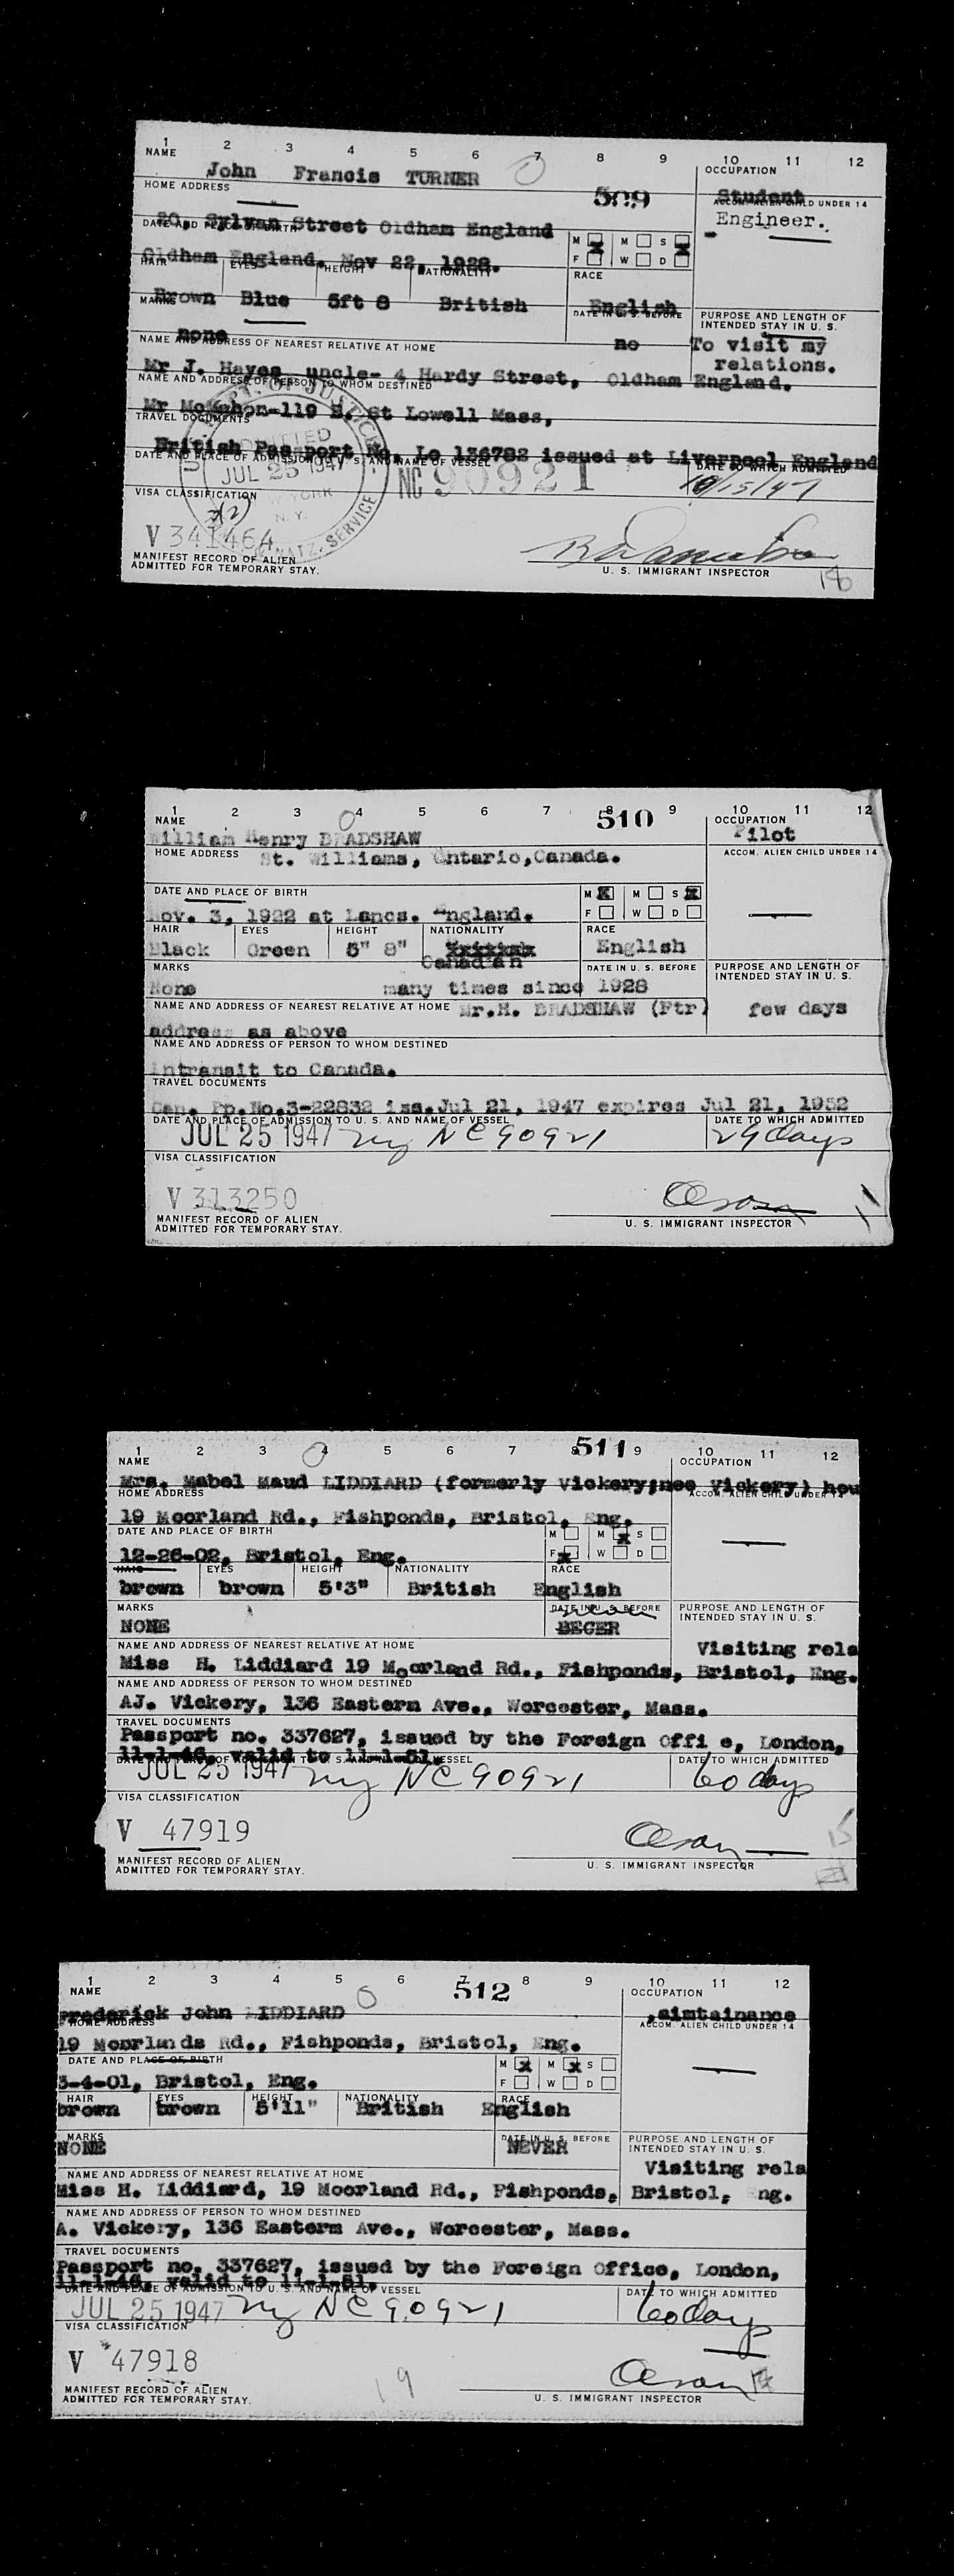 1 2 3 4 5 6 7 8 9 10 11 12
NAME OCCUPATION
John Francis TURNER
509 Student
HOME ADDRESS ACCOM. ALIEN CHILD UNDER 14
Engineer.
20, Sylvan Street Oldham England
DATE AND PLACE OF BIRTH M M S
F W D
Oldham England. Nov 22, 1928.
HAIR EYES HEIGHT NATIONALITY RACE
Brown Blue 5ft 8 British English
MARKS DATE IN U. S. BEFORE PURPOSE AND LENGTH OF INTENDED STAY IN U. S.
none no To visit my
relations.
NAME AND ADDRESS OF NEAREST RELATIVE AT HOME
Mr J. Hayes uncle- 4 Hardy Street, Oldham England.
NAME AND ADDRESS OF PERSON TO WHOM DESTINED
Mr McMahon-119 St Lowell Mass,
TRAVEL DOCUMENTS
British Passport No. Lo 136782 issued at Liverpool England
DATE AND PLACE OF ADMISSION TO U. S. AND NAME OF VESSEL DATE TO WHICH ADMITTED
ADMITTED JUL 25 1947 NEW YORK N. Y. NC 90921 10/15/47
VISA CLASSIFICATION
3(2)
V 341464
MANIFEST RECORD OF ALIEN
ADMITTED FOR TEMPORARY STAY. U. S. IMMIGRANT INSPECTOR
1 2 3 4 5 6 7 8 9 10 11 12
510
NAME OCCUPATION
William Henry BRADSHAW Pilot
HOME ADDRESS St. Williams, Ontario,Canada. ACCOM. ALIEN CHILD UNDER 14
DATE AND PLACE OF BIRTH M X M S X
Nov. 3, 1922 at Lancs. England. F W D
HAIR EYES HEIGHT NATIONALITY RACE
Black Green 5" 8" English
Canadian
MARKS DATE IN U. S. BEFORE PURPOSE AND LENGTH OF INTENDED STAY IN U. S.
None many times since 1928
NAME AND ADDRESS OF NEAREST RELATIVE AT HOME Mr.H. BRADSHAW (Ftr) few days
address as above
NAME AND ADDRESS OF PERSON TO WHOM DESTINED
Intransit to Canada.
TRAVEL DOCUMENTS
Can. Pp.No.3-22832 iss.Jul 21, 1947 expires Jul 21, 1952
DATE AND PLACE OF ADMISSION TO U. S. AND NAME OF VESSEL DATE TO WHICH ADMITTED
JUL 25 1947 ny NC 90921 29 days
VISA CLASSIFICATION
V 313250
MANIFEST RECORD OF ALIEN
ADMITTED FOR TEMPORARY STAY. U. S. IMMIGRANT INSPECTOR
1 2 3 4 5 6 7 8 9 10 11 12
511
NAME OCCUPATION
Mrs. Mabel Maud LIDDIARD (formerly Vickery;nee Vickery) hou
HOME ADDRESS ACCOM. ALIEN CHILD UNDER 14
19 Moorland Rd., Fishponds, Bristol, Eng.
DATE AND PLACE OF BIRTH M M X S
12-26-02, Bristol, Eng. F X W D
HAIR EYES HEIGHT NATIONALITY RACE
brown brown 5'3" British English
MARKS DATE IN U. S. BEFORE PURPOSE AND LENGTH OF INTENDED STAY IN U. S.
NONE BECER never
NAME AND ADDRESS OF NEAREST RELATIVE AT HOME Visiting rela
Miss H. Liddiard 19 Moorland Rd., Fishponds, Bristol, Eng.
NAME AND ADDRESS OF PERSON TO WHOM DESTINED
AJ. Vickery, 136 Eastern Ave., Worcester, Mass.
TRAVEL DOCUMENTS
Passport no. 337627, issued by the Foreign Offi e, London,
11-1-46, valid to 11-1-51.
DATE AND PLACE OF ADMISSION TO U. S. AND NAME OF VESSEL DATE TO WHICH ADMITTED
JUL 25 1947 ny NC 90921 60 days
VISA CLASSIFICATION
V 47919 15
MANIFEST RECORD OF ALIEN
ADMITTED FOR TEMPORARY STAY. U. S. IMMIGRANT INSPECTOR
1 2 3 4 5 6 7 8 9 10 11 12
512
NAME OCCUPATION
Frederick John LIDDIARD ,aimtainance
HOME ADDRESS ACCOM. ALIEN CHILD UNDER 14
19 Moorlands Rd., Fishponds, Bristol, Eng.
DATE AND PLACE OF BIRTH M X M X S
3-4-01, Bristol, Eng. F W D
HAIR EYES HEIGHT NATIONALITY RACE
brown brown 5'11" British English
MARKS DATE IN U. S. BEFORE PURPOSE AND LENGTH OF INTENDED STAY IN U. S.
NONE NEVER
NAME AND ADDRESS OF NEAREST RELATIVE AT HOME Visiting rela
Miss H. Liddiard, 19 Moorland Rd., Fishponds, Bristol, ng.
NAME AND ADDRESS OF PERSON TO WHOM DESTINED
A. Vickery, 136 Eastern Ave., Worcester, Mass.
TRAVEL DOCUMENTS
Passport no. 337627, issued by the Foreign Office, London,
11-1-46, valid to 11-1-51.
DATE AND PLACE OF ADMISSION TO U. S. AND NAME OF VESSEL DATE TO WHICH ADMITTED
JUL 25 1947 ny NC 90921 60 days
VISA CLASSIFICATION
V 47918
MANIFEST RECORD OF ALIEN
ADMITTED FOR TEMPORARY STAY. 19 U. S. IMMIGRANT INSPECTOR